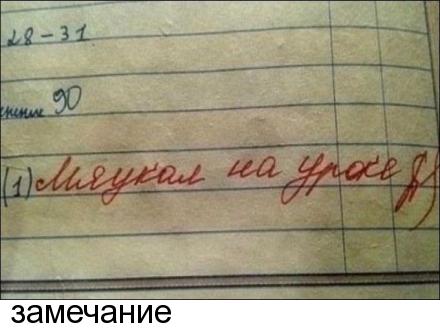 28-31
90
(1) Мяукал на уроке
замечание